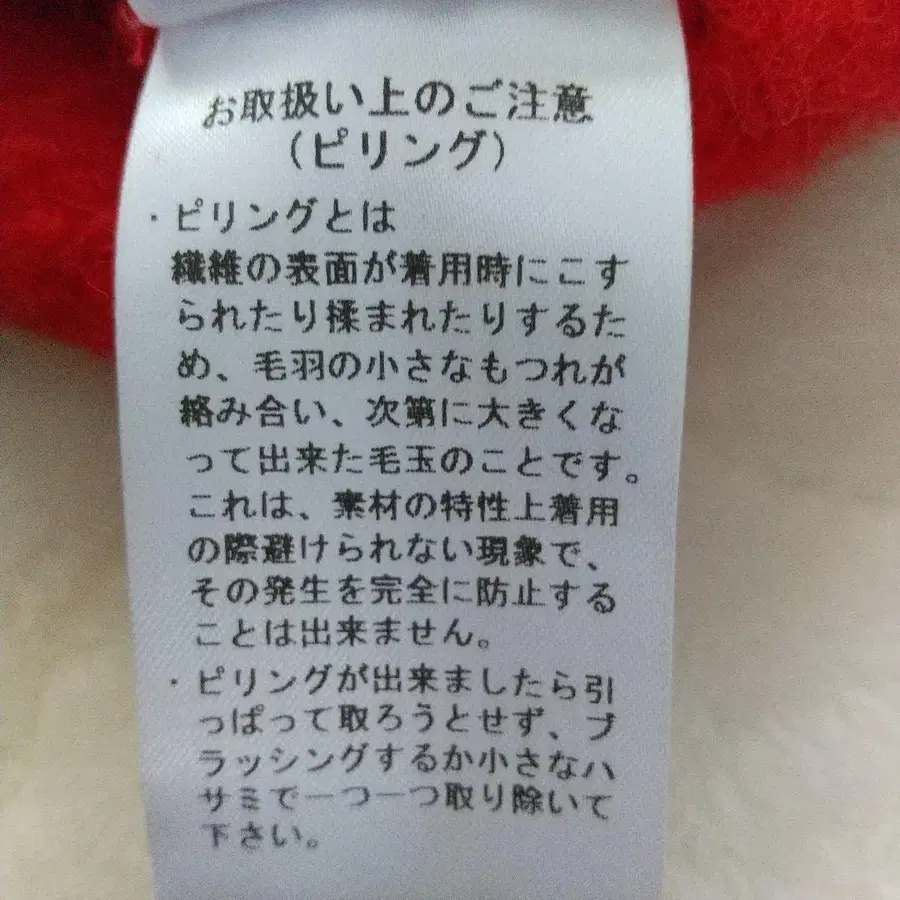 お取扱い上のご注意
（ピリング）
・ピリングとは
繊維の表面が着用時にこす
られたり揉まれたりするた
め、毛羽の小さなもつれが
絡み合い、次第に大きくな
って出来た毛玉のことです。
これは、素材の特性上着用
の際避けられない現象で、
その発生を完全に防止する
ことは出来ません。
・ピリングが出来ましたら引
っぱって取ろうとせず、ブ
ラッシングするか小さなハ
サミで一つ一つ取り除いて
下さい。